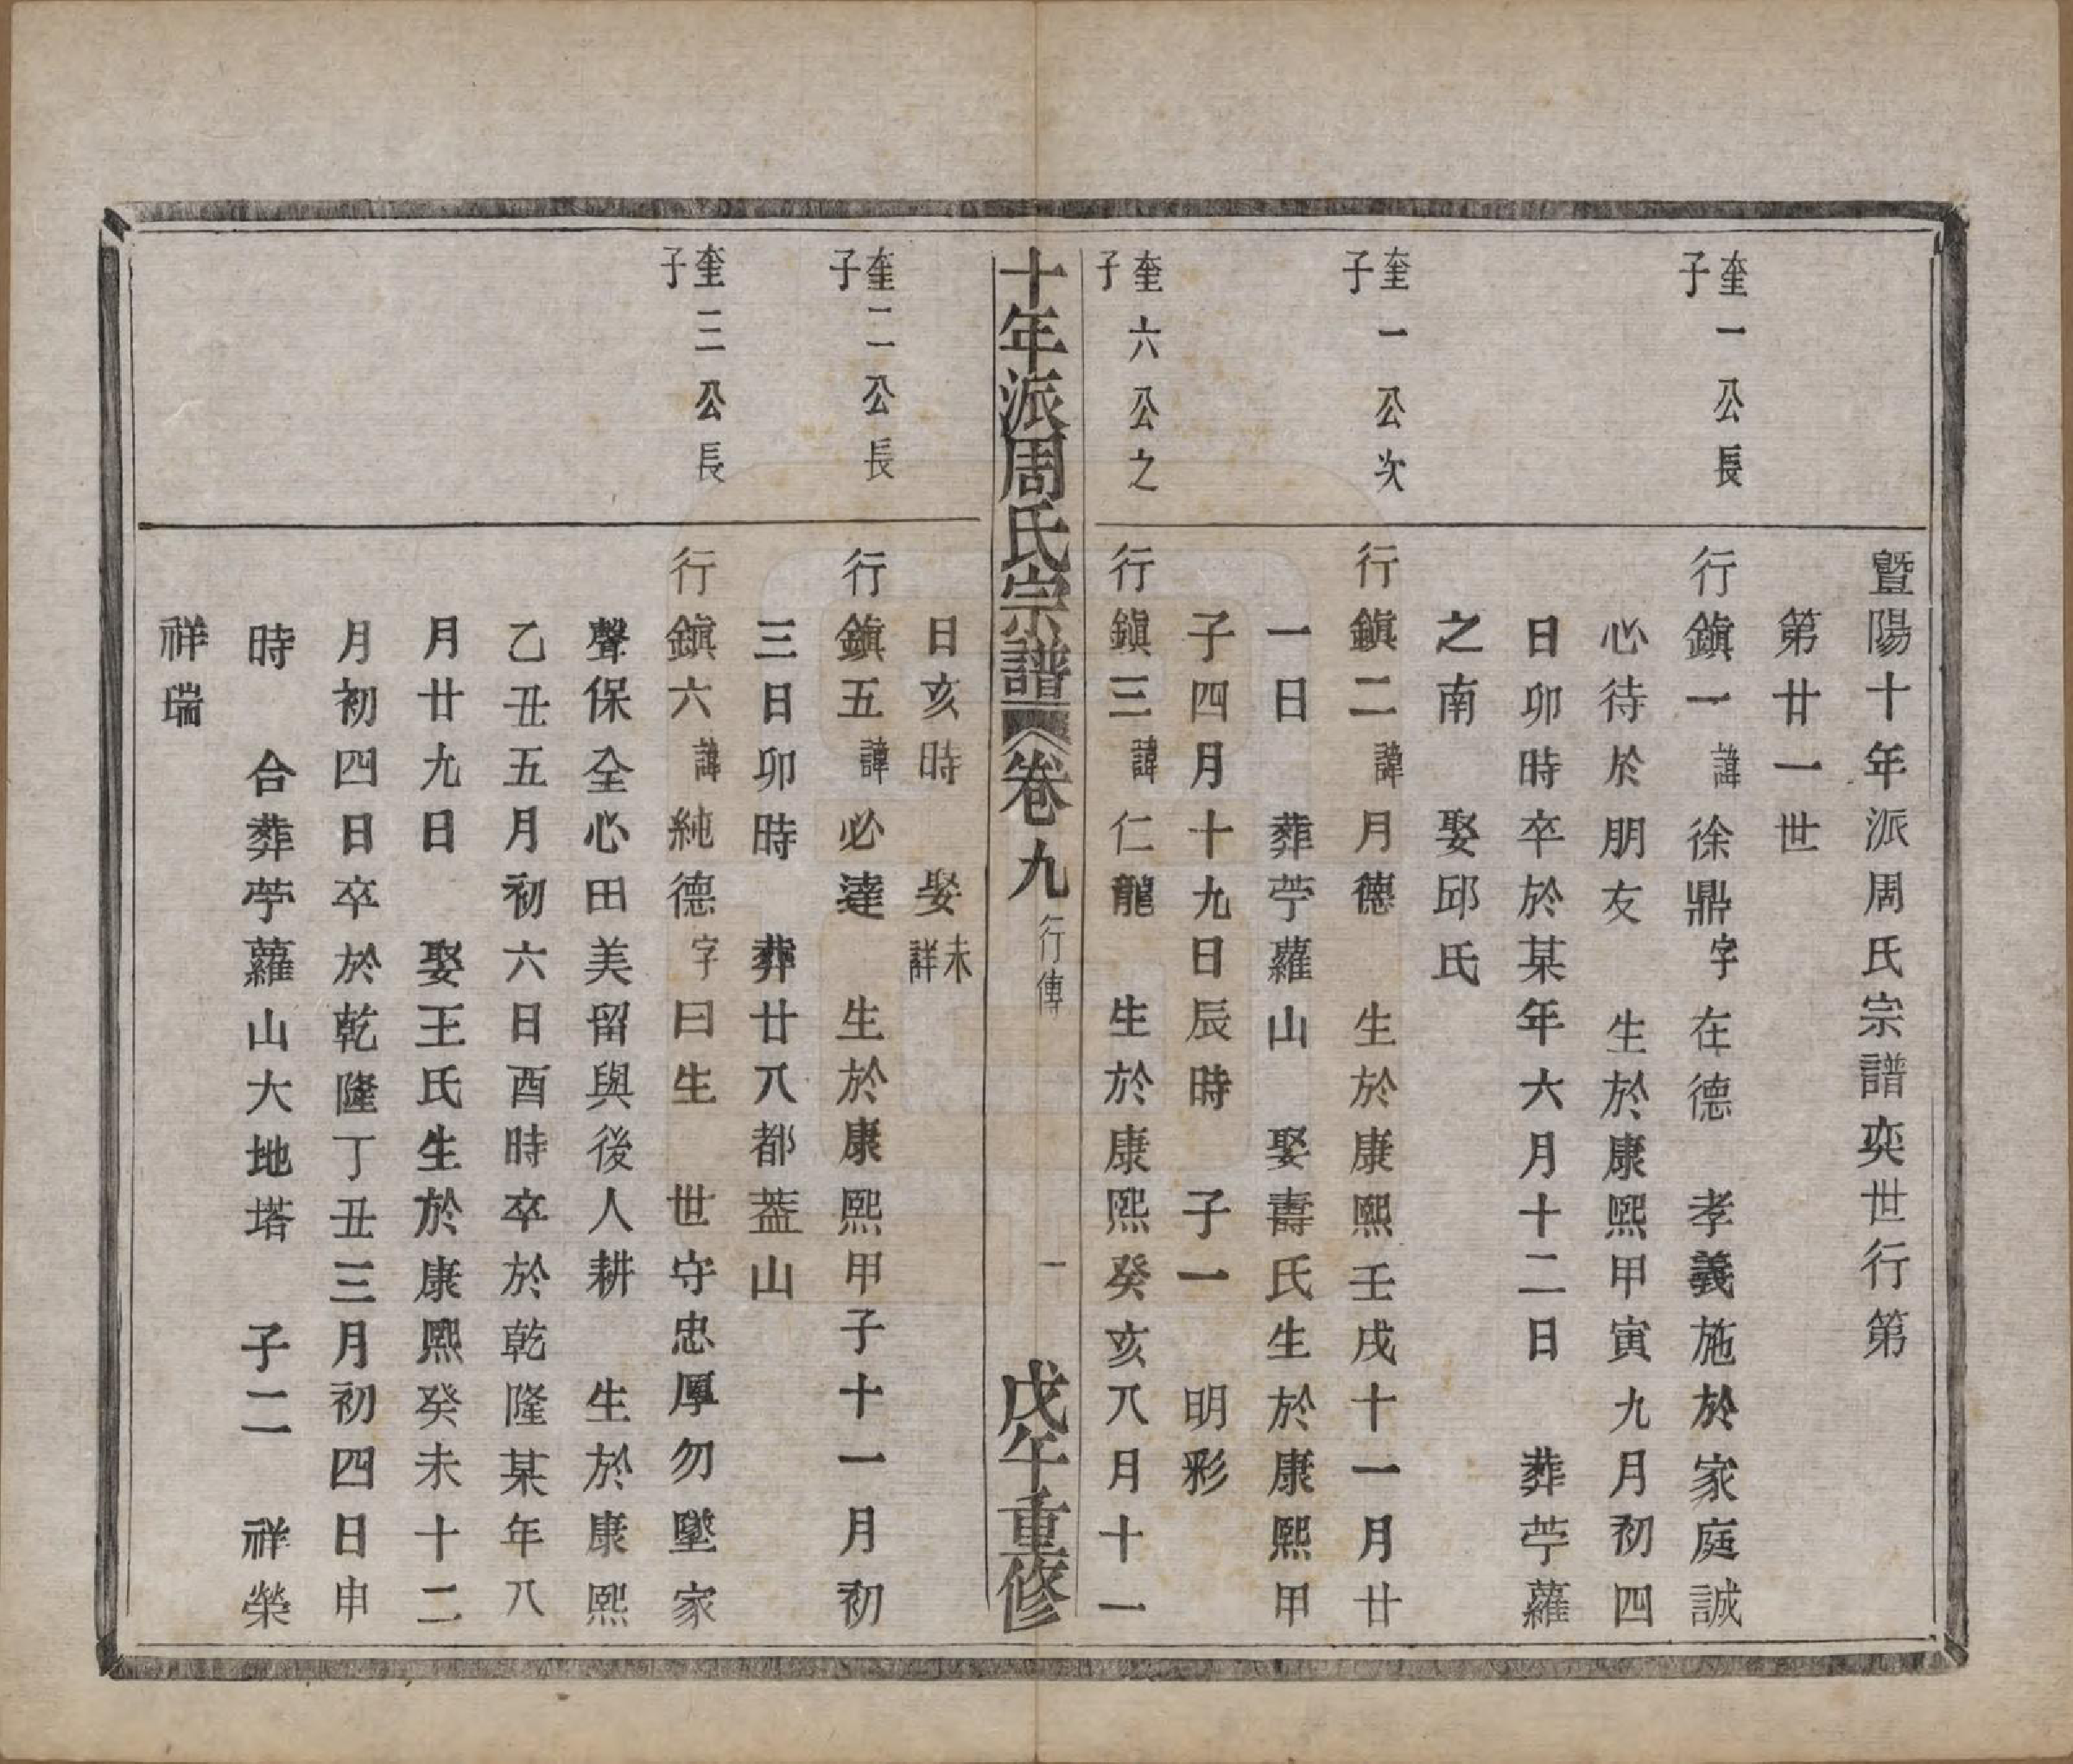 暨陽十年派周氏宗譜奕世行第
第廿一世
奎一公長子
行鎮一諱徐鼎字在德　孝義施於家庭誠
心待於朋友　生於康熙甲寅九月初四
日卯時卒於某年六月十二日　葬苧蘿
之南　娶邱氏
奎一公次子
行鎮二諱月德　生於康熙壬戌十一月廿
一日　葬苧蘿山　娶壽氏生於康熙甲
子四月十九日辰時　子一　明彩
奎六公之子
行鎮三諱仁龍　生於康熙癸亥八月十一
十年派周氏宗譜　卷九　行傳　一　戊午重修
日亥時　娶未詳
奎二公長子
行鎮五諱必達　生於康熙甲子十一月初
三日卯時　葬廿八都葢山
奎三公長子
行鎮六諱純德字曰生　世守忠厚勿墜家
聲保全心田美留與後人耕　生於康熙
乙丑五月初六日酉時卒於乾隆某年八
月廿九日　娶王氏生於康熙癸未十二
月初四日卒於乾隆丁丑三月初四日申
時　合葬苧蘿山大地塔　子二　祥榮
祥瑞